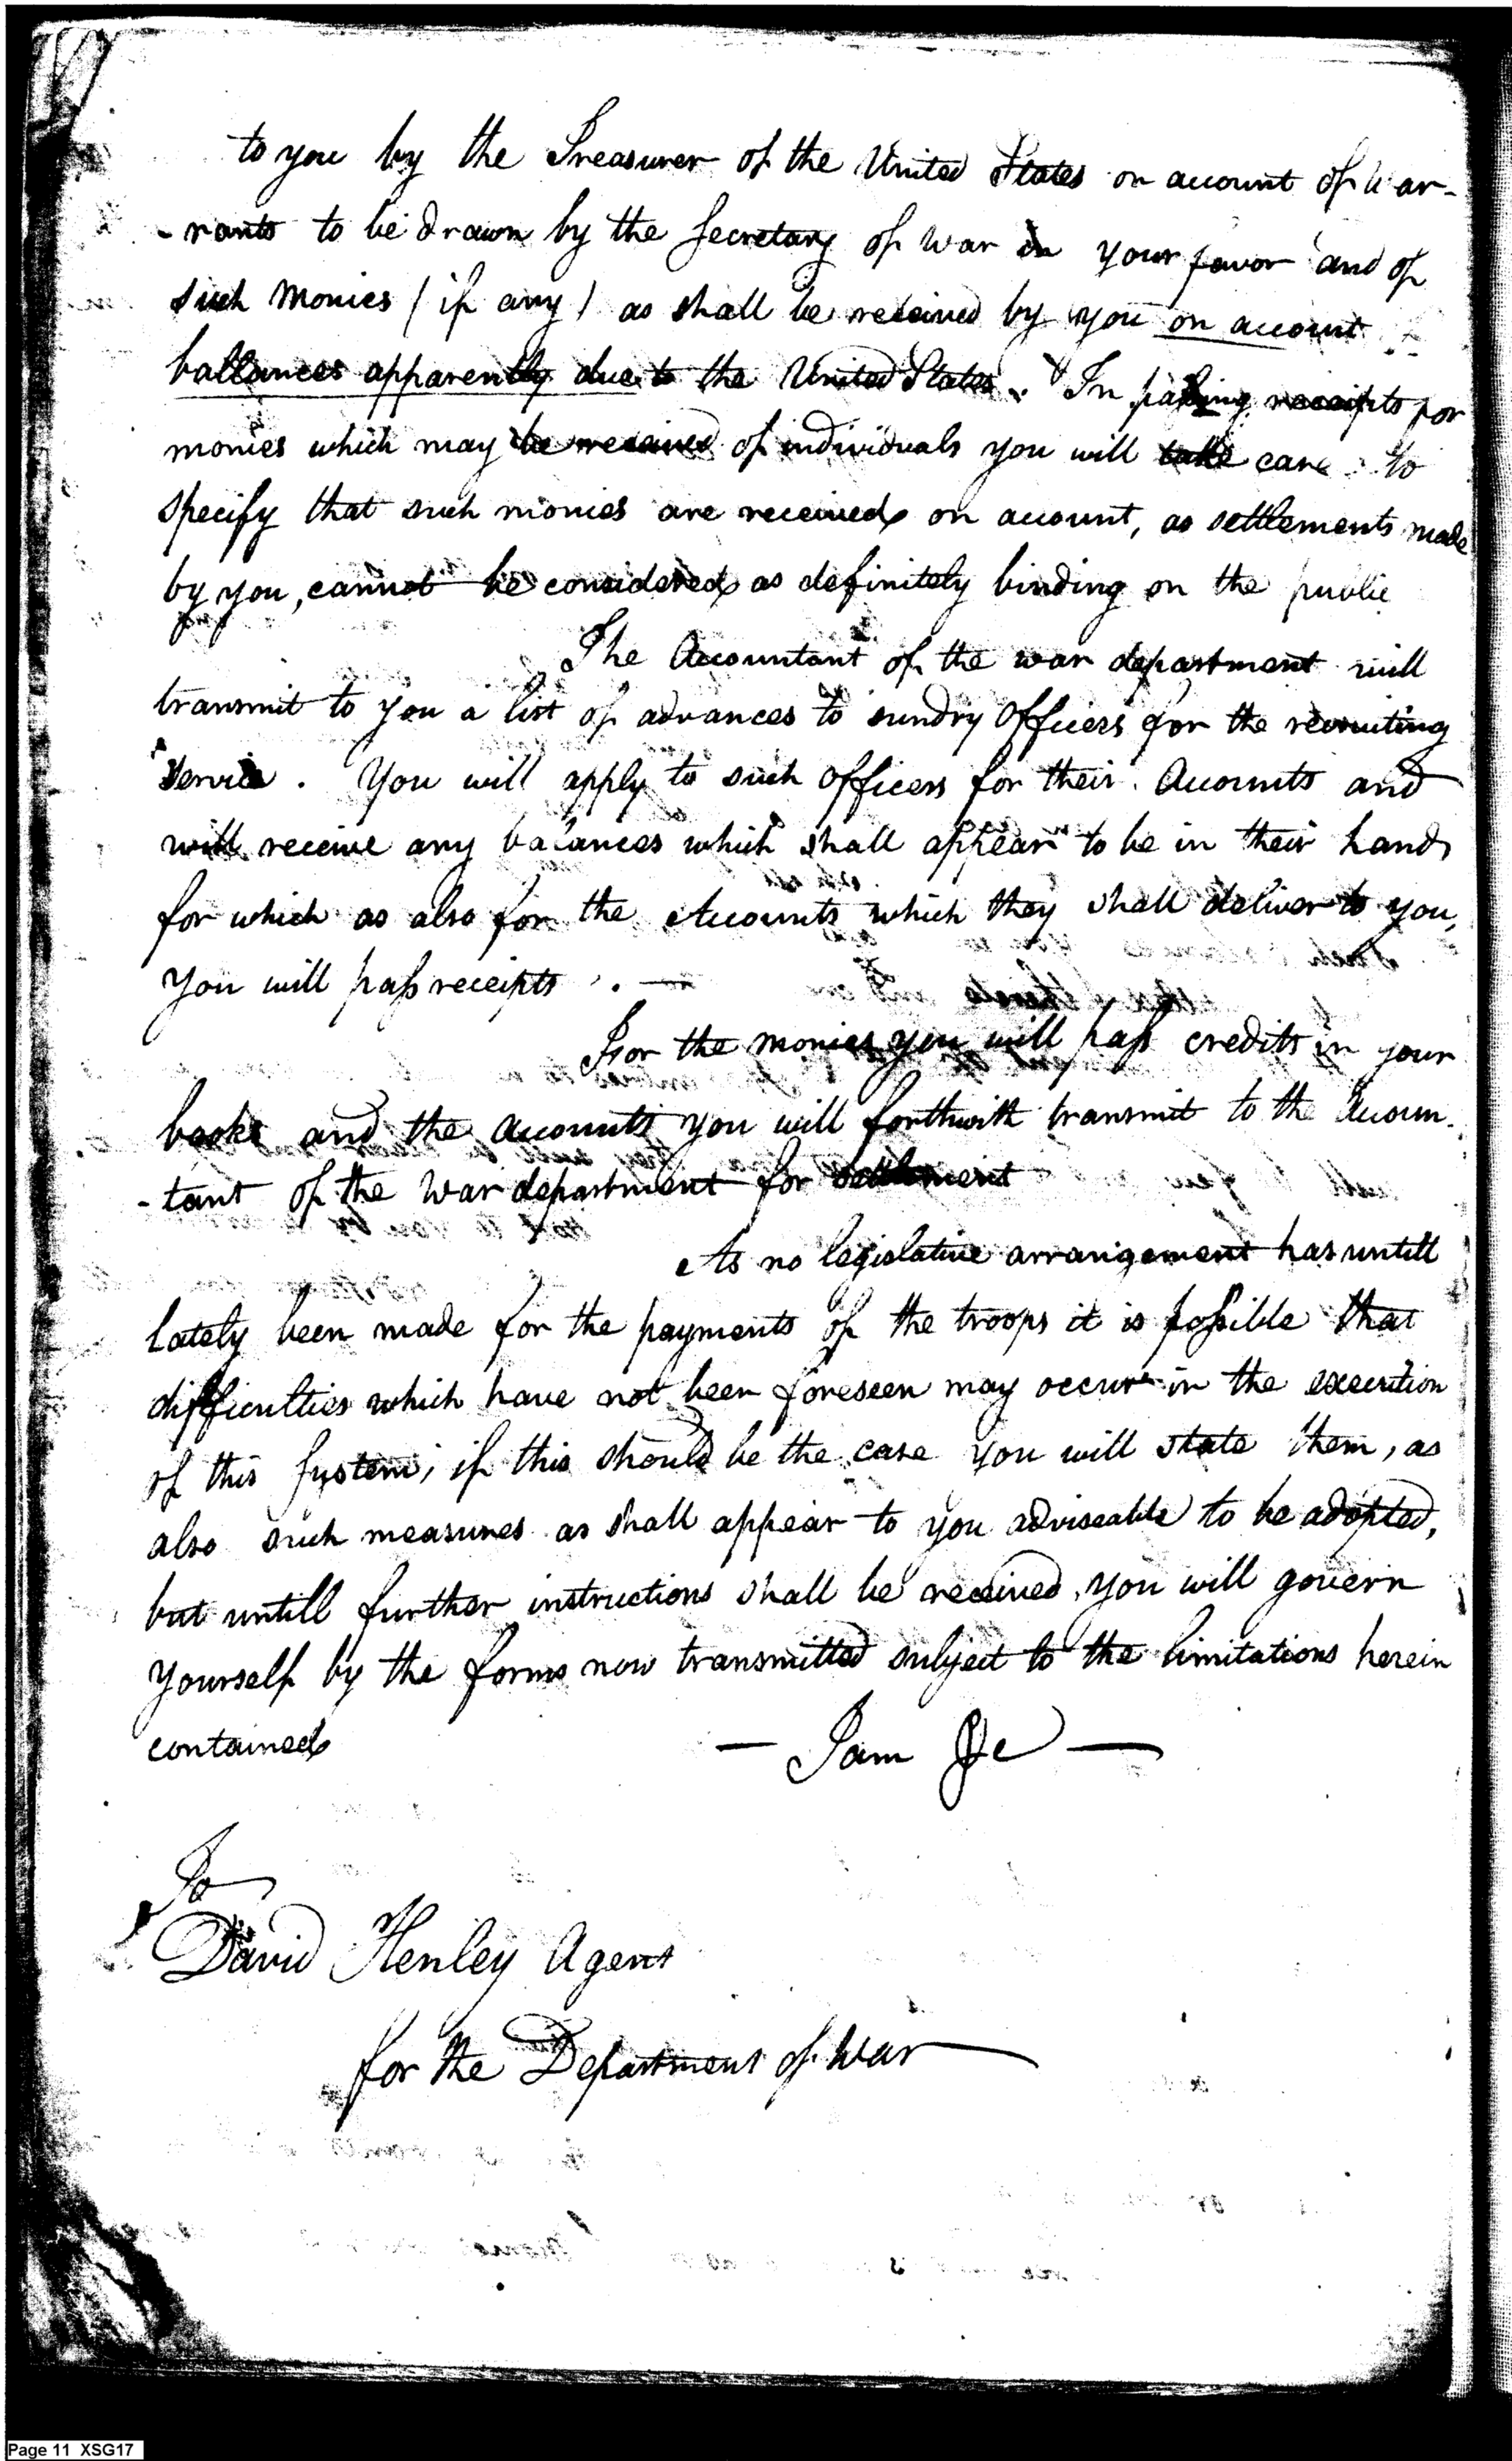 to you by the Treasurer of the United States on account of War-
-rants to be drawn by the Secretary of War in your favor and of
such Monies (if any) as shall be received by you on account
ballances apparently due to the United States. In passing receipts for
monies which may be received of individuals you will take care to
specify that such monies are received on account, as settlements made
by you, cannot be considered as definitely binding on the public
The Accountant of the war department will
transmit to you a list of advances to sundry Officers for the recruiting
Service. You will apply to such Officers for their Accounts and
will receive any balances which shall appear to be in their hands
for which as also for the Accounts which they shall deliver to you,
you will pass receipts. —
For the monies you will pass credits in your
books and the Accounts you will forthwith transmit to the Accoun-
-tant of the War department for settlement
As no legislative arrangement has untill
lately been made for the payments of the troops it is possible that
difficulties which have not been foreseen may occur in the execution
of this System; if this should be the case you will state them, as
also such measures as shall appear to you adviseable to be adopted,
but untill further instructions shall be received, you will govern
yourself by the forms now transmitted subject to the limitations herein
contained — I am &c —
To
David Henley Agent
for the Department of War
Page 11 XSG17